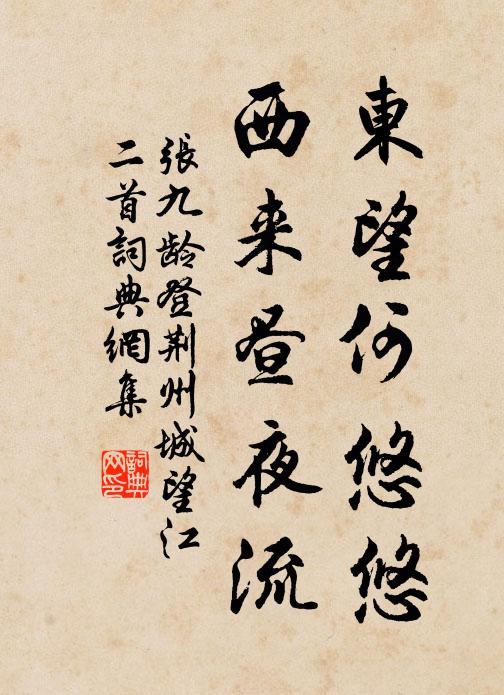 東望何悠悠
西来昼夜流
張九龄登荆州城望江
二首詞典網集
詞典
网印